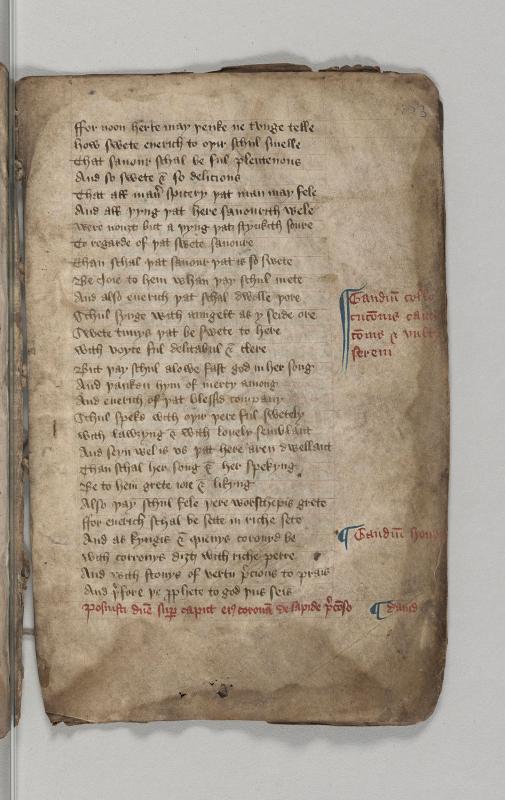 ffor noon herte may þenke ne tunge telle
how swete euerich to oþir schul smelle
That sauour schal be ful plenteuous
And so swete & so delicious
That all man̄ spicery þat man may fele
And all þyng þat here sauourith wele
Were nouȝt but a þyng þat stynketh soure
To regarde of þat swete sauoure
Than schal þat sauour þat is so swete
Be ioie to hem whan þay schul mete
And also euerich þat schal dwelle þore
Schul synge with aungell as y seide ore
Swete tunys þat be swete to here
With voyce ful delitabul & clere
But þay schul alowe fast god in her song
And þanken hym of mercy among
And euerich of þat blessid company
Schul speke with oþir þere ful swetely
With lawȝyng & with louely semblant
And seyn wel is vs þat here aren dwellant
Than schal her song & her spekyng
Be to hem grete ioie & likyng
Also þay schul fele þere worschepis grete
ffor euerich schal be sette in riche sete
And as kyngis & quenys corouyd be
With corronys diȝt with riche perre
And with stonys of vertu p̄cious to prais
And þ̄fore þe ꝓphete to god þus seis
Posuisti dn̄e sup̄ caput eiꝰ coronā de lapide p̄c̄oso
¶ dauid
¶ Gaudiū
serem
¶ Gaudiū